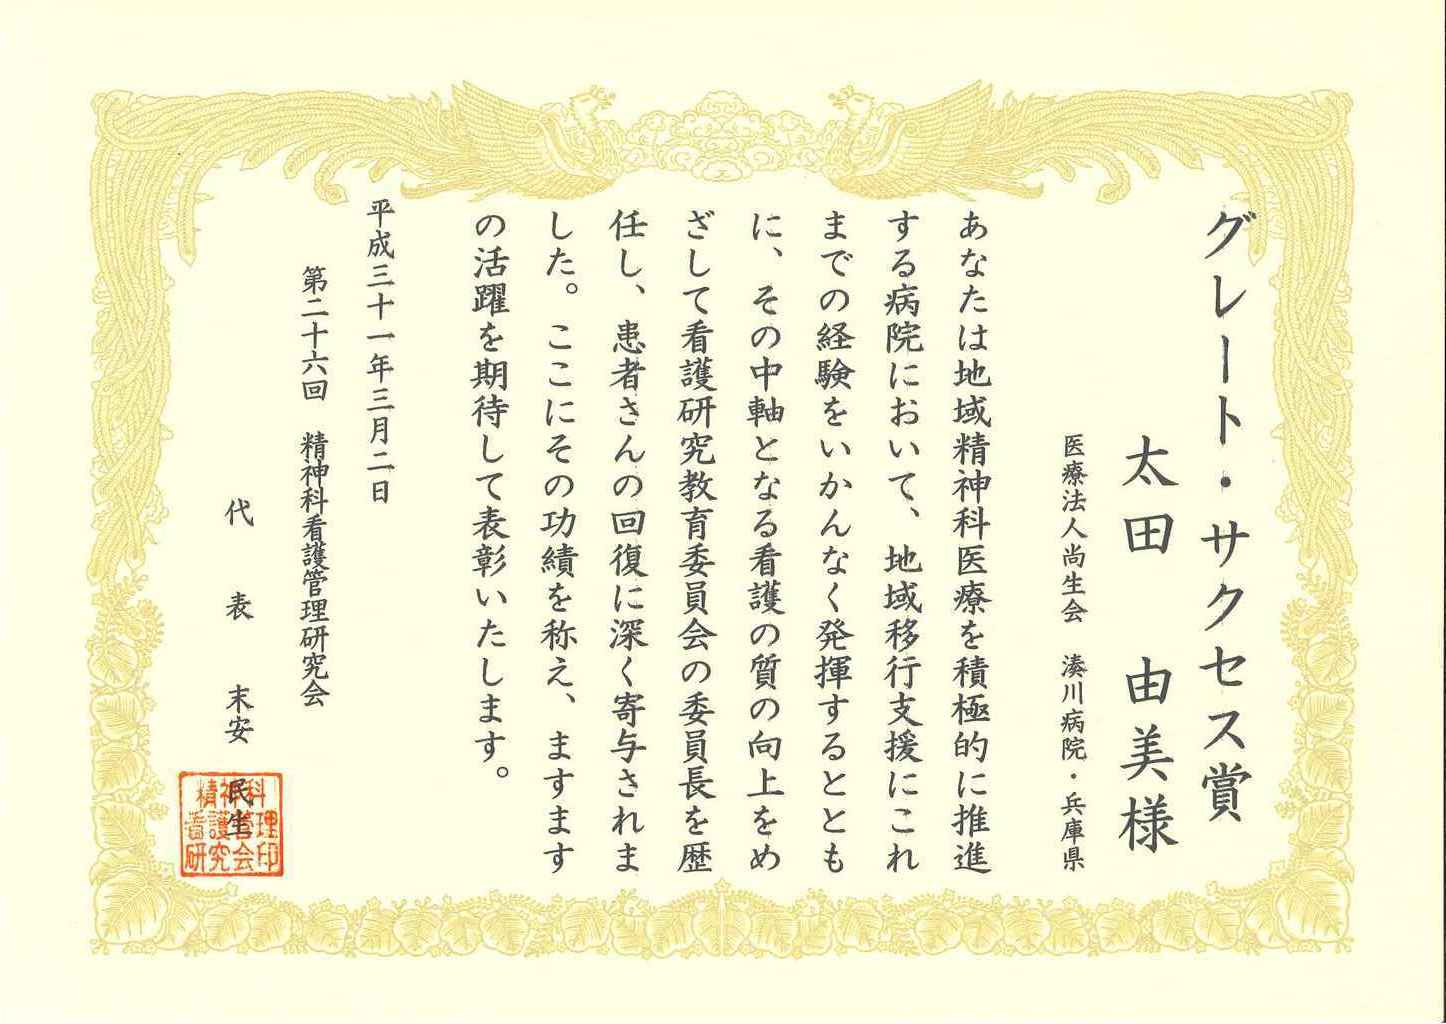 グレート・サクセス賞
太田　由美様
医療法人尚生会　湊川病院・兵庫県
あなたは地域精神科医療を積極的に推進
する病院において、地域移行支援にこれ
までの経験をいかんなく発揮するととも
に、その中軸となる看護の質の向上をめ
ざして看護研究教育委員会の委員長を歴
任し、患者さんの回復に深く寄与されま
した。ここにその功績を称え、ますます
の活躍を期待して表彰いたします。
平成三十一年三月二日
第二十六回　精神科看護管理研究会
代　表　末安　民生
精神科
看護管理
研究会印